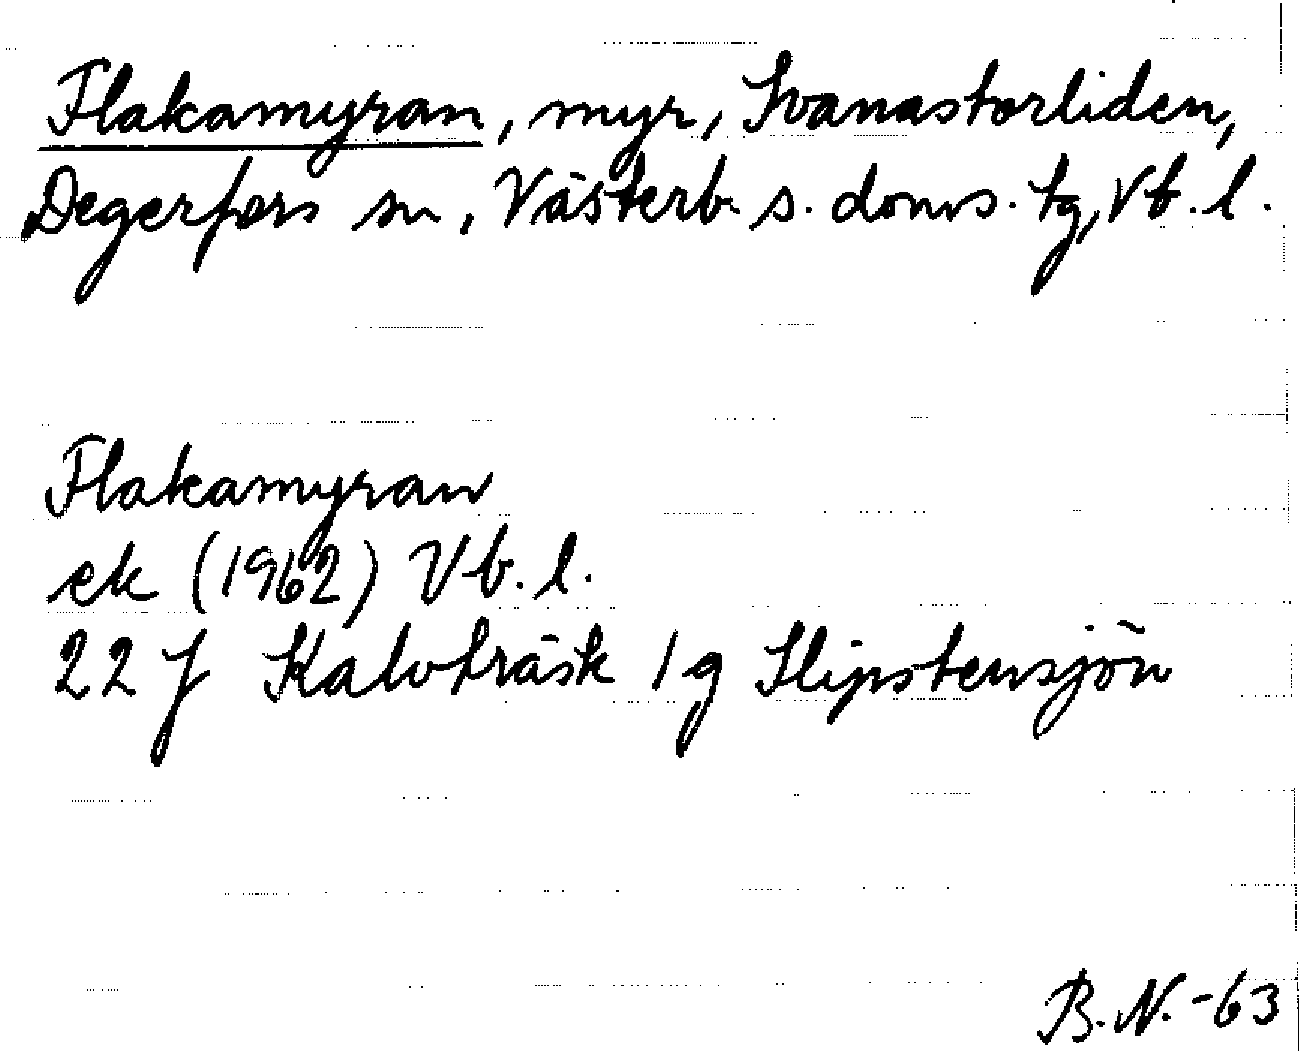 Flakamyran, myr, Svanastorliden,
Degerfors sn, Västerb. s. doms. tg, Vb. l.
Flakamyran
ek (1962) Vb. l.
22 J Kalvträsk 1 g Slipstensjön
B.N. -63